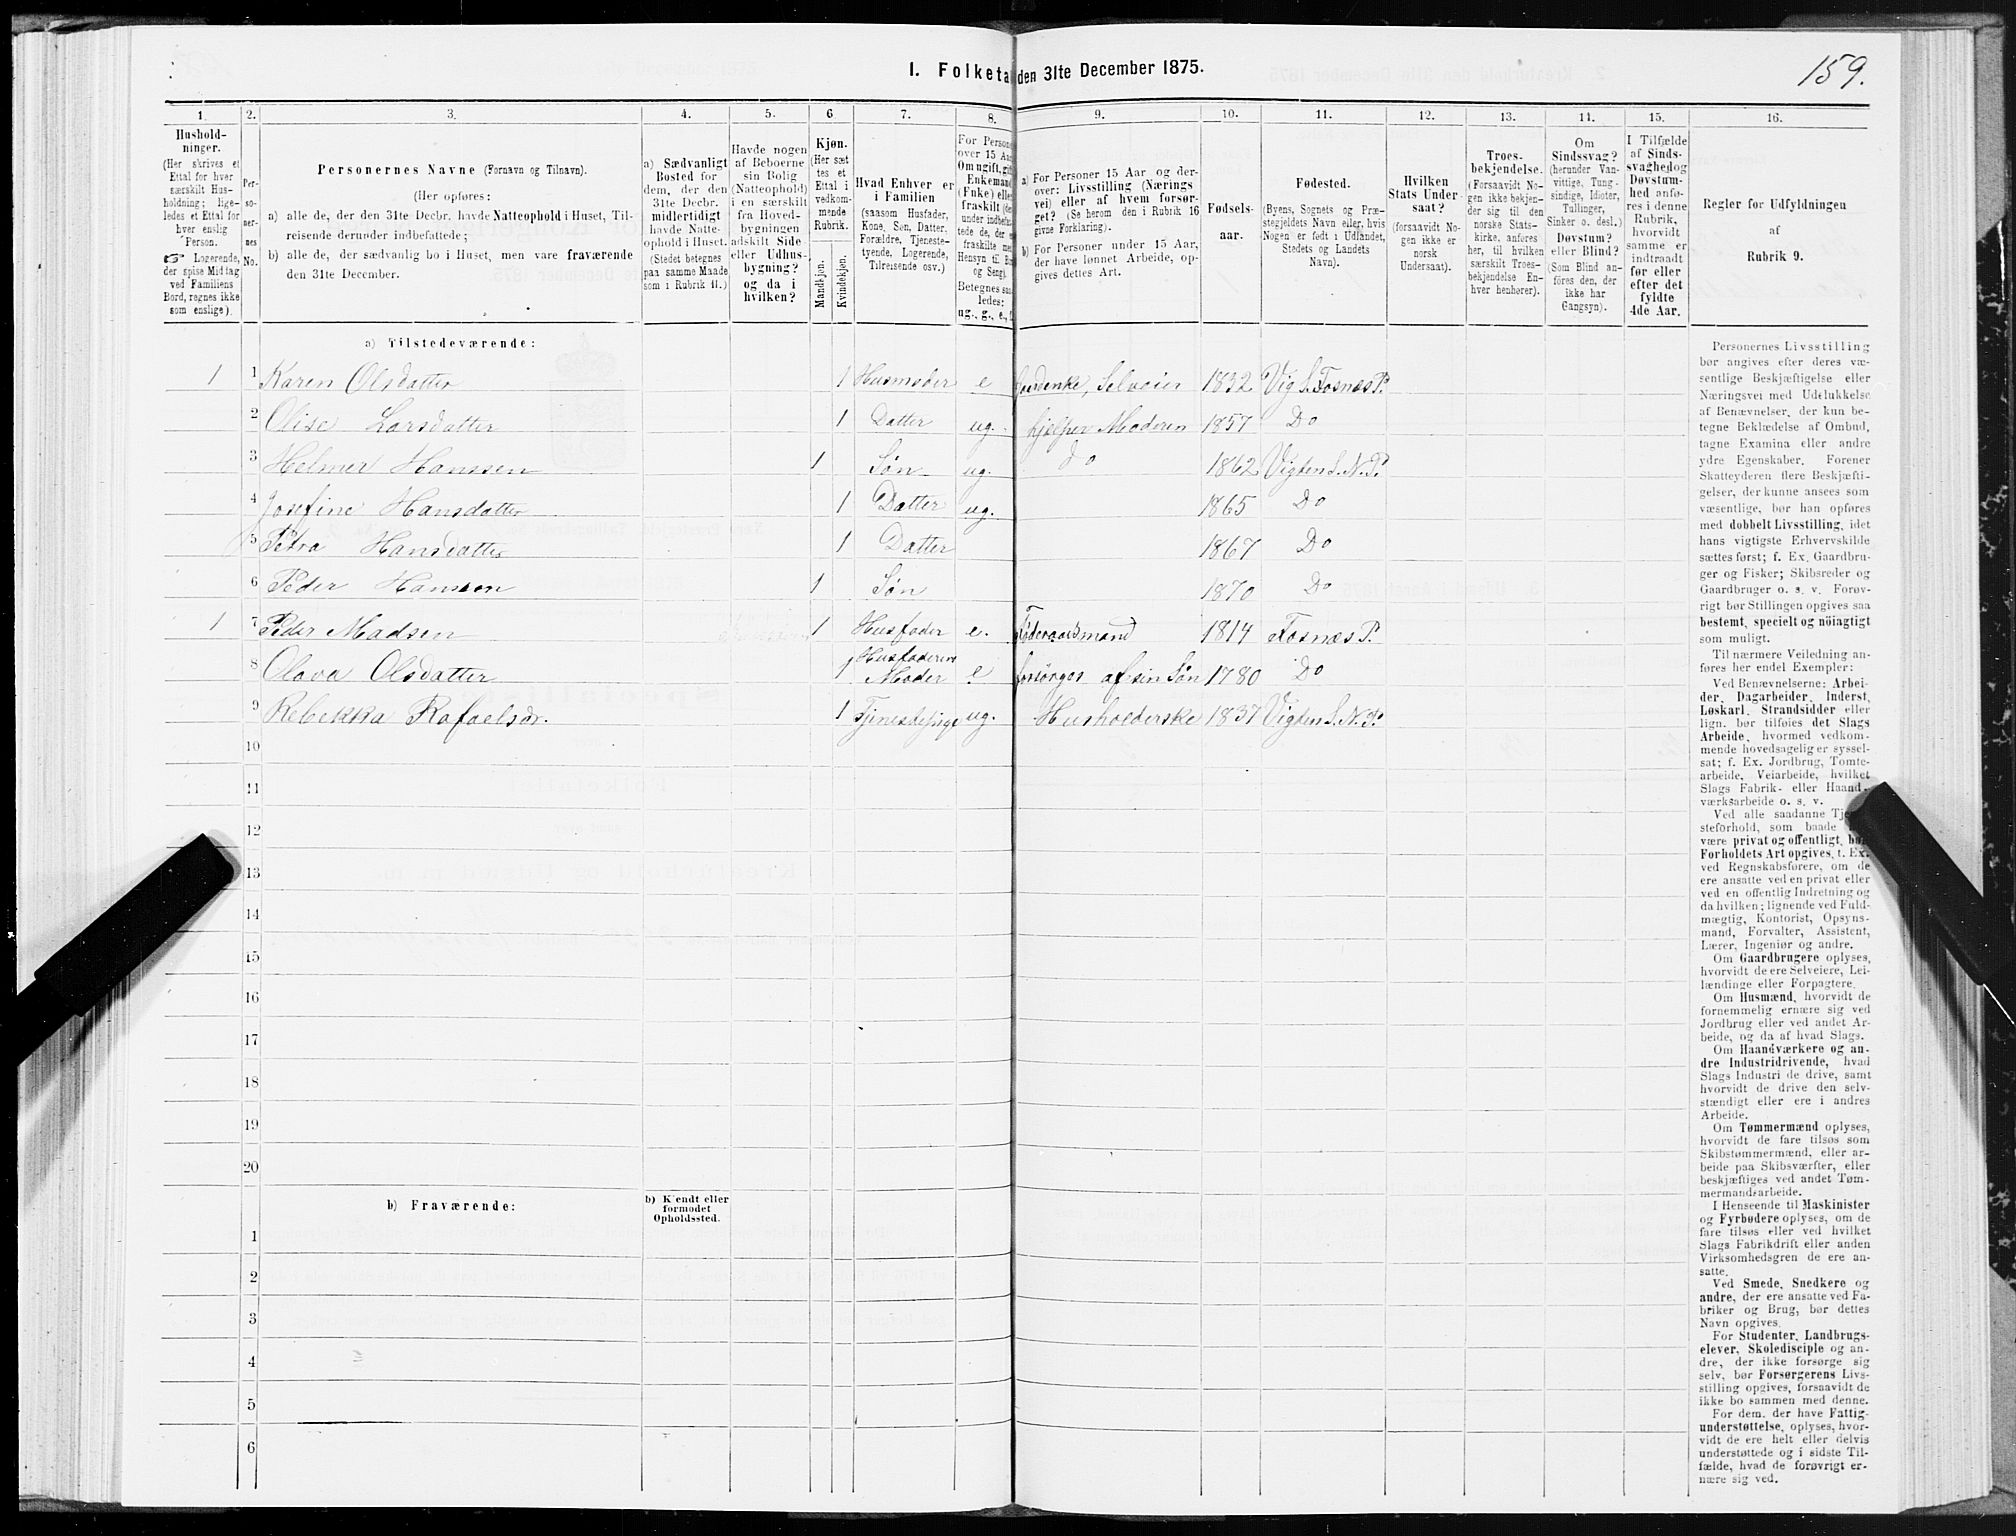 159.
I. Folketa den 31te December 1875.
1. 2. 3. 4. 5. 6. 7. 8. 9. 10. 11. 12. 13. 14. 15. 16.
Hushold-
ninger.
(Her skrives et
Ettal for hver
særskilt Hus-
holdning; lige-
ledes et Ettal for
hver enslig
Person.
Logerende,
der spise Middag
ved Familiens
Bord, regnes ikke
som enslige).
Per-
so-
ner-
nes
No.
Personernes Navne (Fornavn og Tilnavn).
(Her opføres:
a) alle de, der den 31te Decbr. havde Natteophold i Huset, Til-
reisende derunder indbefattede;
b) alle de, der sædvanlig bo i Huset, men vare fraværende
den 31te December.
a) Sædvanligt
Bosted for
dem, der den
31te Decbr.
midlertidigt
havde Natte-
ophold i Huset.
(Stedet betegnes
paa samme Maade
som i Rubrik 11.)
Havde nogen
af Beboerne
sin Bolig
(Natteophold)
i en særskilt
fra Hoved-
bygningen
adskilt Side-
eller Udhus-
bygning?
og da i
hvilken?
Kjøn.
(Her sæt-
tes et
Ettal i
vedkom-
mende
Rubrik.
Mandkjøn.
Kvindekjøn.
Hvad Enhver er
i Familien
(saasom Husfader,
Kone, Søn, Datter,
Forældre, Tjeneste-
tyende, Logerende,
Tilreisende osv.)
For Person
over 15 Aa
Om ugift, gif
Enkeman
(Enke) elle
fraskilt (de
under indbefa
tede de, der e
fraskilte me
Hensyn til B
og Seng).
Betegnes saa
ledes:
ug., g., e.,
a) For Personer 15 Aar og der-
over: Livsstilling (Nærings-
vei) eller af hvem forsør-
get? (Se herom den i Rubrik 16
givne Forklaring).
b) For Personer under 15 Aar,
der have lønnet Arbeide, op-
gives dettes Art.
Fødsels-
aar.
Fødested.
(Byens, Sognets og Præ-
stegjeldets Navn eller, hvis
Nogen er født i Udlandet,
Stedets og Landets
Navn).
Hvilken
Stats Under-
saat?
(forsaavidt No-
gen ikke er
norsk
Undersaat).
Troes-
bekjendelse.
(Forsaavidt No-
gen ikke bekjen-
der sig til den
norske Stats-
kirke, anføres
her, til hvilken
særskilt Troes-
bekjendelse En-
hver henhører).
Om
Sindssvag?
(herunder Van-
vittige, Tung-
sindige, Idioter,
Tullinger,
Sinker o. desl.)
Døvstum?
eller Blind?
(Som Blind an-
føres den, der
ikke har
Gangsyn).
I Tilfælde
af Sinds-
svaghed og
Døvstum-
hed anfø-
res i denne
Rubrik,
hvorvidt
samme er
indtraadt
før eller
efter det
fyldte
4de Aar.
Regler for Udfyldningen
af
Rubrik 9.
a) Tilstedeværende:
1 1 Karen Olsdatter 1 Husmoder e Gaardenke, Selveier 1832 Vig S. Fosnæs P.
2 Olise Larsdatter 1 Datter ug. hjelper Moderen 1857 Do
3 Helmer Hanssen 1 Søn ug. do 1862 Vigten S. N. P.
4 Josefine Hansdatter 1 Datter ug. 1865 Do
5 Petra Hansdatter 1 Datter 1867 Do
6 Peder Hanssen 1 Søn 1870 Do
1 7 Peder Madsen 1 Husfader e. Føderaadsmand 1814 Fosnæs P.
8 Olava Olsdatter 1 Husfaderens Moder e forsørges af sin Søn 1780 Do
9 Rebekka Rafaelsdr. 1 Tjenestepige ug. Husholderske 1837 Vigten S. N. P.
10
11
12
13
14
15
16
17
18
19
20
b) Fraværende:
b) Kjendt eller
formodet
Opholdssted.
1
2
3
4
5
6
Personernes Livsstilling
bør angives efter deres væ-
sentlige Beskjæftigelse eller
Næringsvei med Udelukkelse
af Benævnelser, der kun be-
tegne Beklædelse af Ombud,
tagne Examina eller andre
ydre Egenskaber. Forener
Skatteyderen flere Beskjæfti-
gelser, der kunne ansees som
væsentlige, bør han opføres
med dobbelt Livsstilling, idet
hans vigtigste Erhvervskilde
sættes først; f. Ex. Gaardbru-
ger og Fisker; Skibsreder og
Gaardbruger o. s. v. Forøv-
rigt bør Stillingen opgives saa
bestemt, specielt og nöiagtigt
som muligt.
Til nærmere Veiledning an-
føres her endel Exempler:
Ved Benævnelserne: Arbei-
der, Dagarbeider, Inderst,
Løskarl, Strandsidder eller
lign. bør tilføies det Slags
Arbeide, hvormed vedkom-
mende hovedsagelig er syssel-
sat; f. Ex. Jordbrug, Tomte-
arbeide, Veiarbeide, hvilket
Slags Fabrik- eller Haand-
værksarbeide o. s. v.
Ved alle saadanne Tje-
steforhold, som baade
være privat og offentligt, bør
Forholdets Art opgives, t. Ex.
ved Regnskabsførere, om de
ere ansatte ved en privat eller
ved en offentlig Indretning og
da hvilken; lignende ved Fuld-
mægtig, Kontorist, Opsyns-
mand, Forvalter, Assistent,
Lærer, Ingeniør og andre.
Om Gaardbrugere oplyses,
hvorvidt de ere Selveiere, Lei-
lændinge eller Forpagtere.
Om Husmænd, hvorvidt de
fornemmelig ernære sig ved
Jordbrug eller ved andet Ar-
beide, og da af hvad Slags.
Om Haandværkere og an-
dre Industridrivende, hvad
Slags Industri de drive, samt
hvorvidt de drive den selv-
stændigt eller ere i andres
Arbeide.
Om Tømmermænd oplyses,
hvorvidt de fare tilsøs som
Skibstømmermænd, eller ar-
beide paa Skibsværfter, eller
beskjæftiges ved andet Tøm-
mermandsarbeide.
I Henseende til Maskinister
og Fyrbødere oplyses, om de
fare tilsøs eller ved hvilket
Slags Fabrikdrift eller anden
Virksomhedsgren de ere an-
satte.
Ved Smede, Snedkere og
andre, der ere ansatte ved Fa-
briker og Brug, bør dettes
Navn opgives.
For Studenter, Landbrugs-
elever, Skoledisciple og an-
dre, der ikke forsørge sig
selv, bør Forsørgerens Livs-
stilling opgives, forsaavidt de
ikke bo sammen med denne.
For dem, der have Fattig-
understøttelse, oplyses, hvor-
vidt de ere helt eller delvis
understøttede og i sidste Til-
fælde, hvad de forøvrigt er-
nære sig ved.